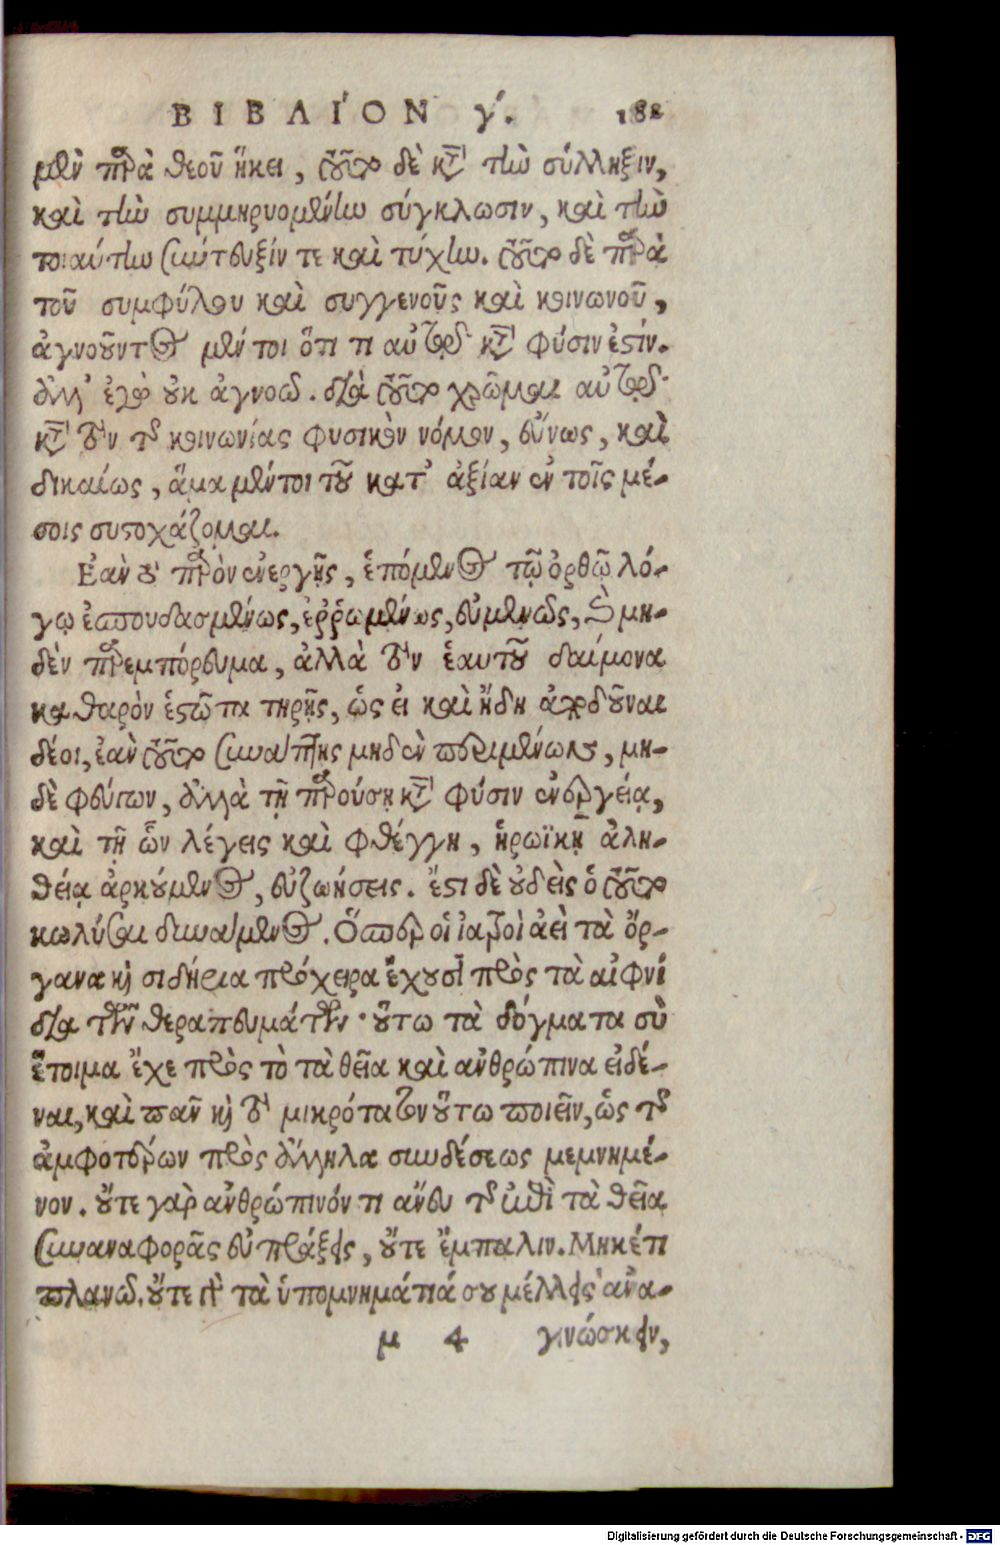 ΒΙΒΛΙΌΝ γ΄. 182
μὲν παρὰ θεοῦ ἥκει, τοῦτο δὲ κατὰ τὴν σύλληξιν,
καὶ τὴν συμμηρυομένην σύγκλωσιν, καὶ τὴν
τοιαύτην σύντευξίν τε καὶ τύχην. τοῦτο δὲ παρὰ
τοῦ συμφύλου καὶ συγγενοῦς καὶ κοινωνοῦ,
ἀγνοοῦντος μέντοι ὅτι τι αὐτῷ κατὰ φύσιν ἐστίν.
ἀλλ' ἐγὼ οὐκ ἀγνοῶ. διὰ τοῦτο χρῶμαι αὐτῷ
κατὰ τὸν τῆς κοινωνίας φυσικὸν νόμον, εὔνως, καὶ
δικαίως, ἅμα μέντοι τοῦ κατ' ἀξίαν ἐν τοῖς μέ-
σοις συστοχάζομαι.
Ἐὰν τὸ παρὸν ἐνεργῇς, ἑπόμενος τῷ ὀρθῷ λό-
γῳ ἐσπουδασμένως, ἐῤῥωμένως, εὐμενῶς, καὶ μη-
δὲν παρεμπόρευμα, ἀλλὰ τὸν ἑαυτοῦ δαίμονα
καθαρὸν ἑστῶτα τηρῇς, ὡς εἰ καὶ ἤδη ἀποδοῦναι
δέοι, ἐὰν τοῦτο συνάπτῃς μηδὲν περιμένων, μη-
δὲ φεύγων, ἀλλὰ τῇ παρούσῃ κατὰ φύσιν ἐνεργείᾳ,
καὶ τῇ ὧν λέγεις καὶ φθέγγῃ, ἡρωϊκῇ ἀλη-
θείᾳ ἀρκούμενος, εὐζωήσεις. ἔστι δὲ οὐδεὶς ὁ τοῦτο
κωλύσαι δυνάμενος. Ὥσπερ οἱ ἰατροὶ ἀεὶ τὰ ὄρ-
γανα καὶ σιδήρια πρόχειρα ἔχουσι πρὸς τὰ αἰφνί
δια τῶν θεραπευμάτων· οὕτω τὰ δόγματα σὺ
ἕτοιμα ἔχε πρὸς τὸ τὰ θεῖα καὶ ἀνθρώπινα εἰδέ-
ναι, καὶ πᾶν καὶ τὸ μικρότατον οὕτω ποιεῖν, ὡς τῆς
ἀμφοτέρων πρὸς ἄλληλα συνδέσεως μεμνημέ-
νον. οὔτε γὰρ ἀνθρώπινόν τι ἄνευ τῆς ἐπὶ τὰ θεῖα
συναναφορᾶς εὖ πράξεις, οὔτε ἔμπαλιν. Μηκέτι
πλανῶ. οὔτε γὰρ τὰ ὑπομνημάτιά σου μέλλεις ἀνα-
μ 4 γινώσκειν,
Digitalisierung gefördert durch die Deutsche Forschungsgemeinschaft - DFG